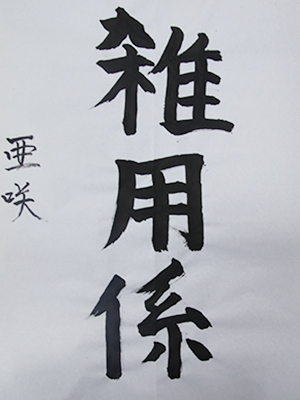 雑用係
亜咲